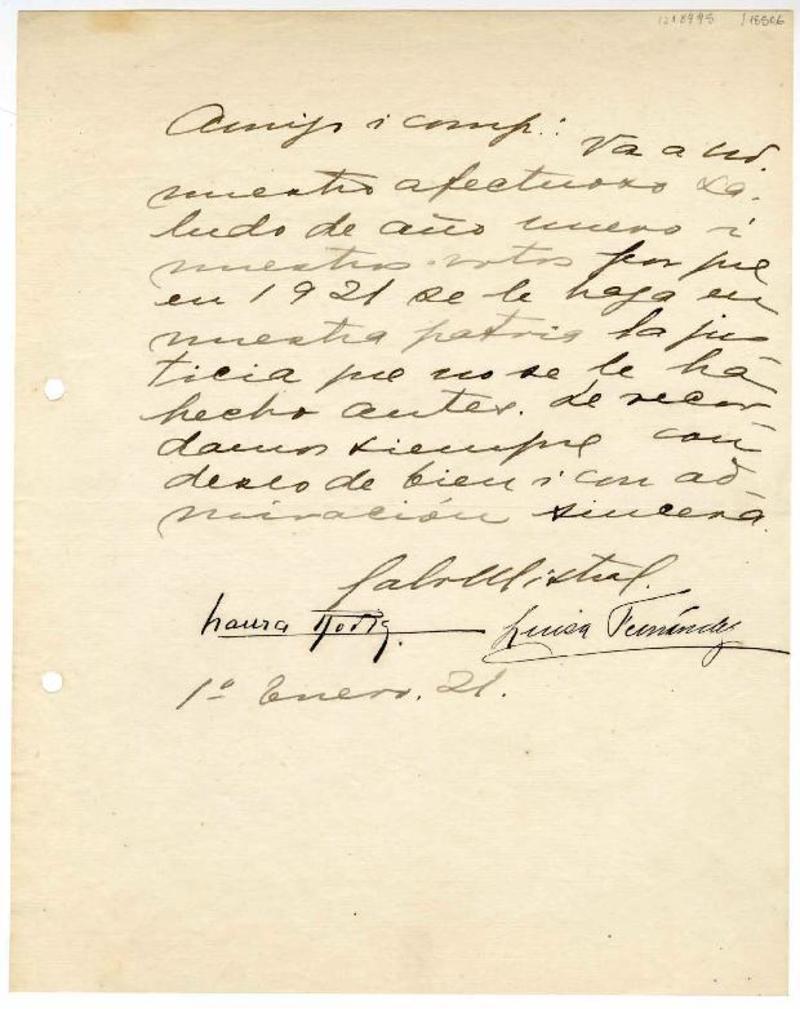 1218995 118506
Amigo i comp.:
Va a Ud.
nuestro afectuoso sa-
ludo de año nuevo i
nuestros votos por que
en 1921 se le haga en
nuestra patria la jus
ticia que no se le ha
hecho antes. Le recor
damos siempre con
deseo de bien i con ad
miración sincera.
Gab. Mistral.
Laura Rodig. Luisa Fernández
1º Enero. 21.